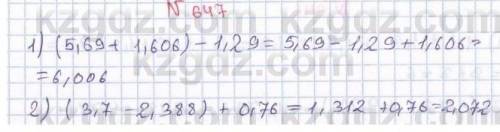 N 647
1) (5,69 + 1,606) - 1,29 = 5,69 - 1,29 + 1,606 =
= 6,006
2) (3,7 - 2,388) + 0,76 = 1,312 + 0,76 = 2,072